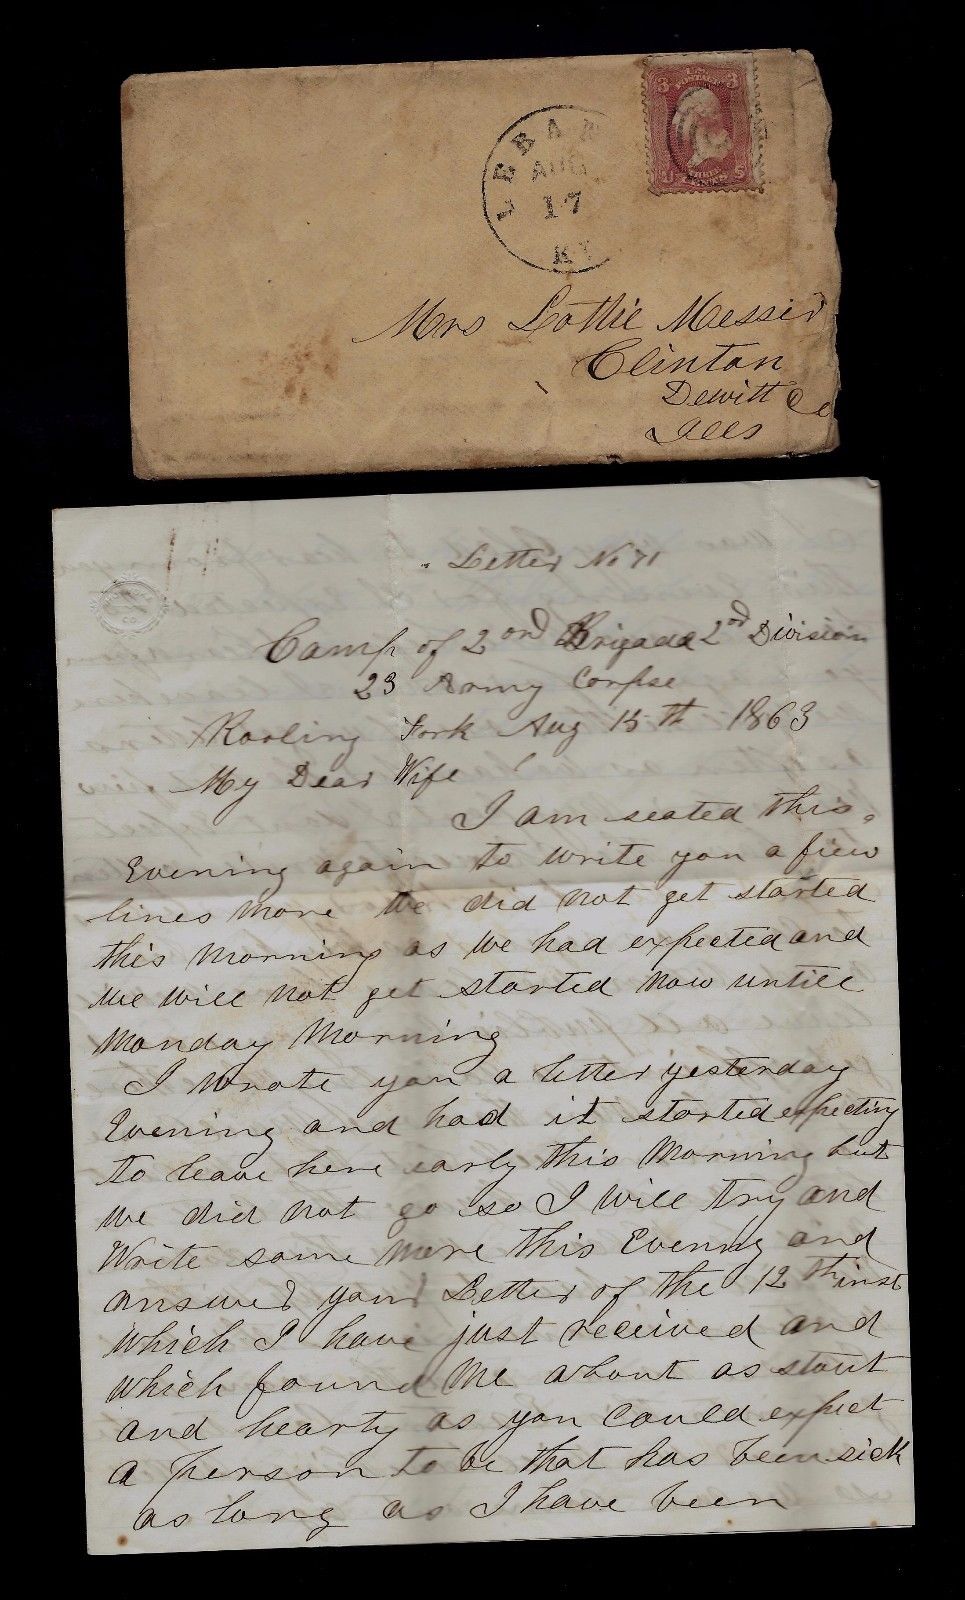 3 3
U.S.
POSTAGE
LEBAN
AUG
17
KY
THREE
CENTS
U S
Mrs Lottie Messer
Clinton
Dewitt Co
Ills
Letter No 71
Camp of 2ond Brigade 2ond Division
23 Army Corpse
Roaling Fork Aug 15th 1863
My Dear Wife
I am seated this
Evening again to write you a fiew
lines more We did not get started
this Morning as We had expected and
We Will not get started now untill
Monday Morning
I Wrote you a letter yesterday
Evening and had it started expecting
to leave here early this Morning but
We did not go so I Will try and
Write some more this Evening and
answer your Letter of the 12th inst
Which I have just received and
Which found Me about as stout
and hearty as you could expect
a person to be that has been sick
as long as I have been